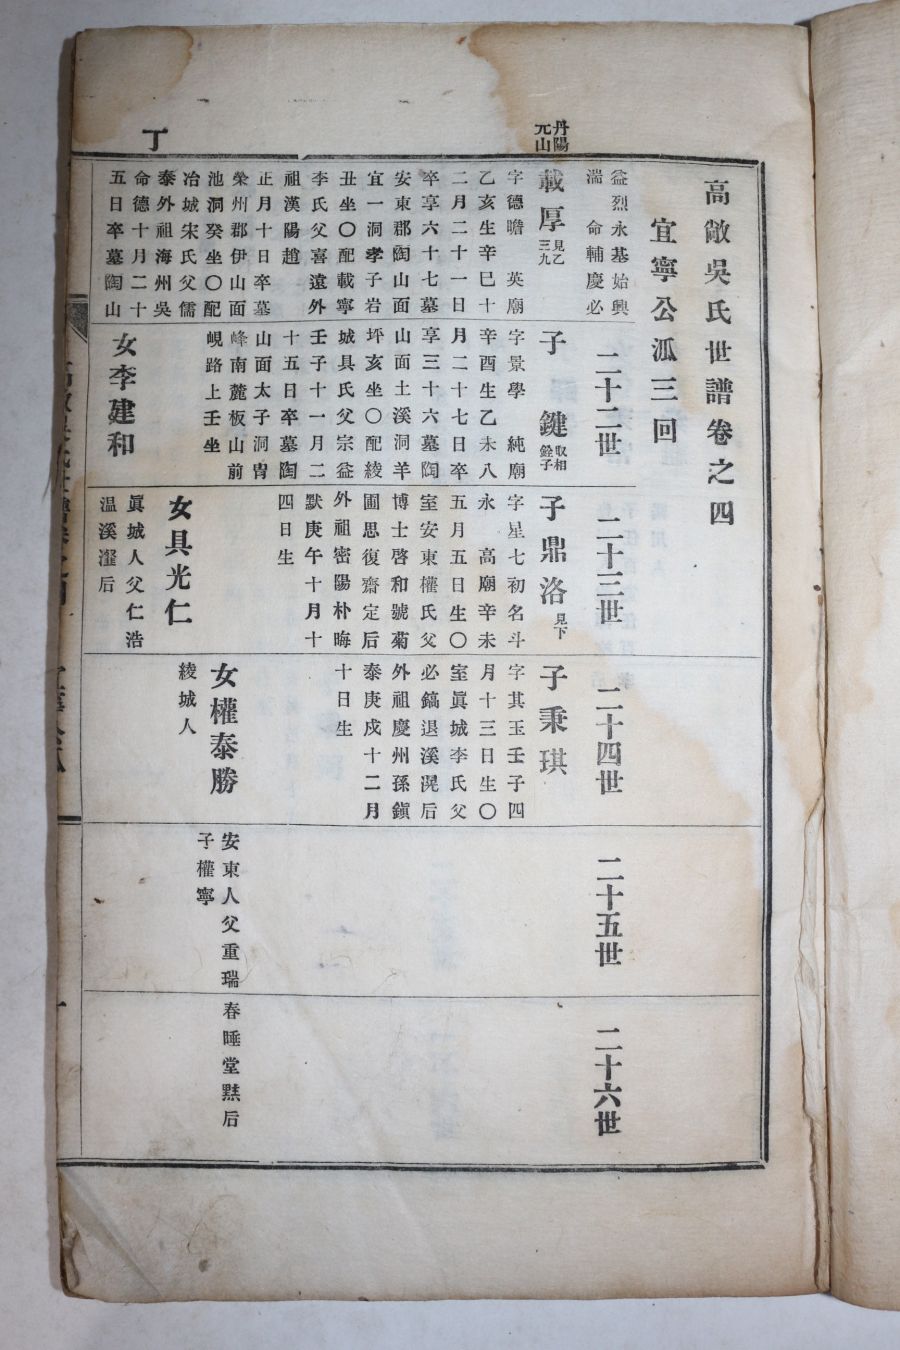 丹陽
元山
丁
高敞吳氏世譜卷之四
宜寧公派三回
益烈永基始興
湍 命輔慶必
載厚 見乙三九
字德瞻 英廟
乙亥生辛巳十
二月二十一日
卒享六十七墓
安東郡陶山面
宜一洞孝子岩
丑坐〇配載寧
李氏父喜遠外
祖漢陽趙
正月十日卒墓
榮州郡伊山面
池洞癸坐〇配
冶城宋氏父儒
泰外祖海州吳
命德十月二十
五日卒墓陶山
二十二世
子 鍵 取相銓子
字景學 純廟
辛酉生乙未八
月二十七日卒
享三十六墓陶
山面土溪洞羊
坪亥坐〇配綾
城具氏父宗益
壬子十一月二
十五日卒墓陶
山面太子洞胄
峰南麓板山前
峴路上壬坐
女李建和
二十三世
子鼎洛 見下
字星七初名斗
永 高廟辛未
五月五日生〇
室安東權氏父
博士啓和號菊
圃思復齋定后
外祖密陽朴晦
默庚午十月十
四日生
女具光仁
眞城人父仁浩
温溪瀣后
二十四世
子秉琪
字其玉壬子四
月十三日生〇
室眞城李氏父
必鎬退溪滉后
外祖慶州孫鎭
泰庚戌十二月
十日生
女權泰勝
綾城人
二十五世
安東人父重瑞
子權寧
二十六世
春睡堂黙后